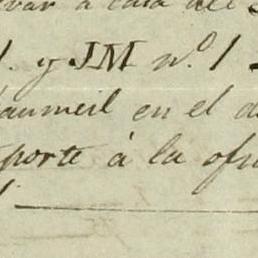 var à casa del
1. y JM n.º 1
aumeil en el d
porte à la ofi